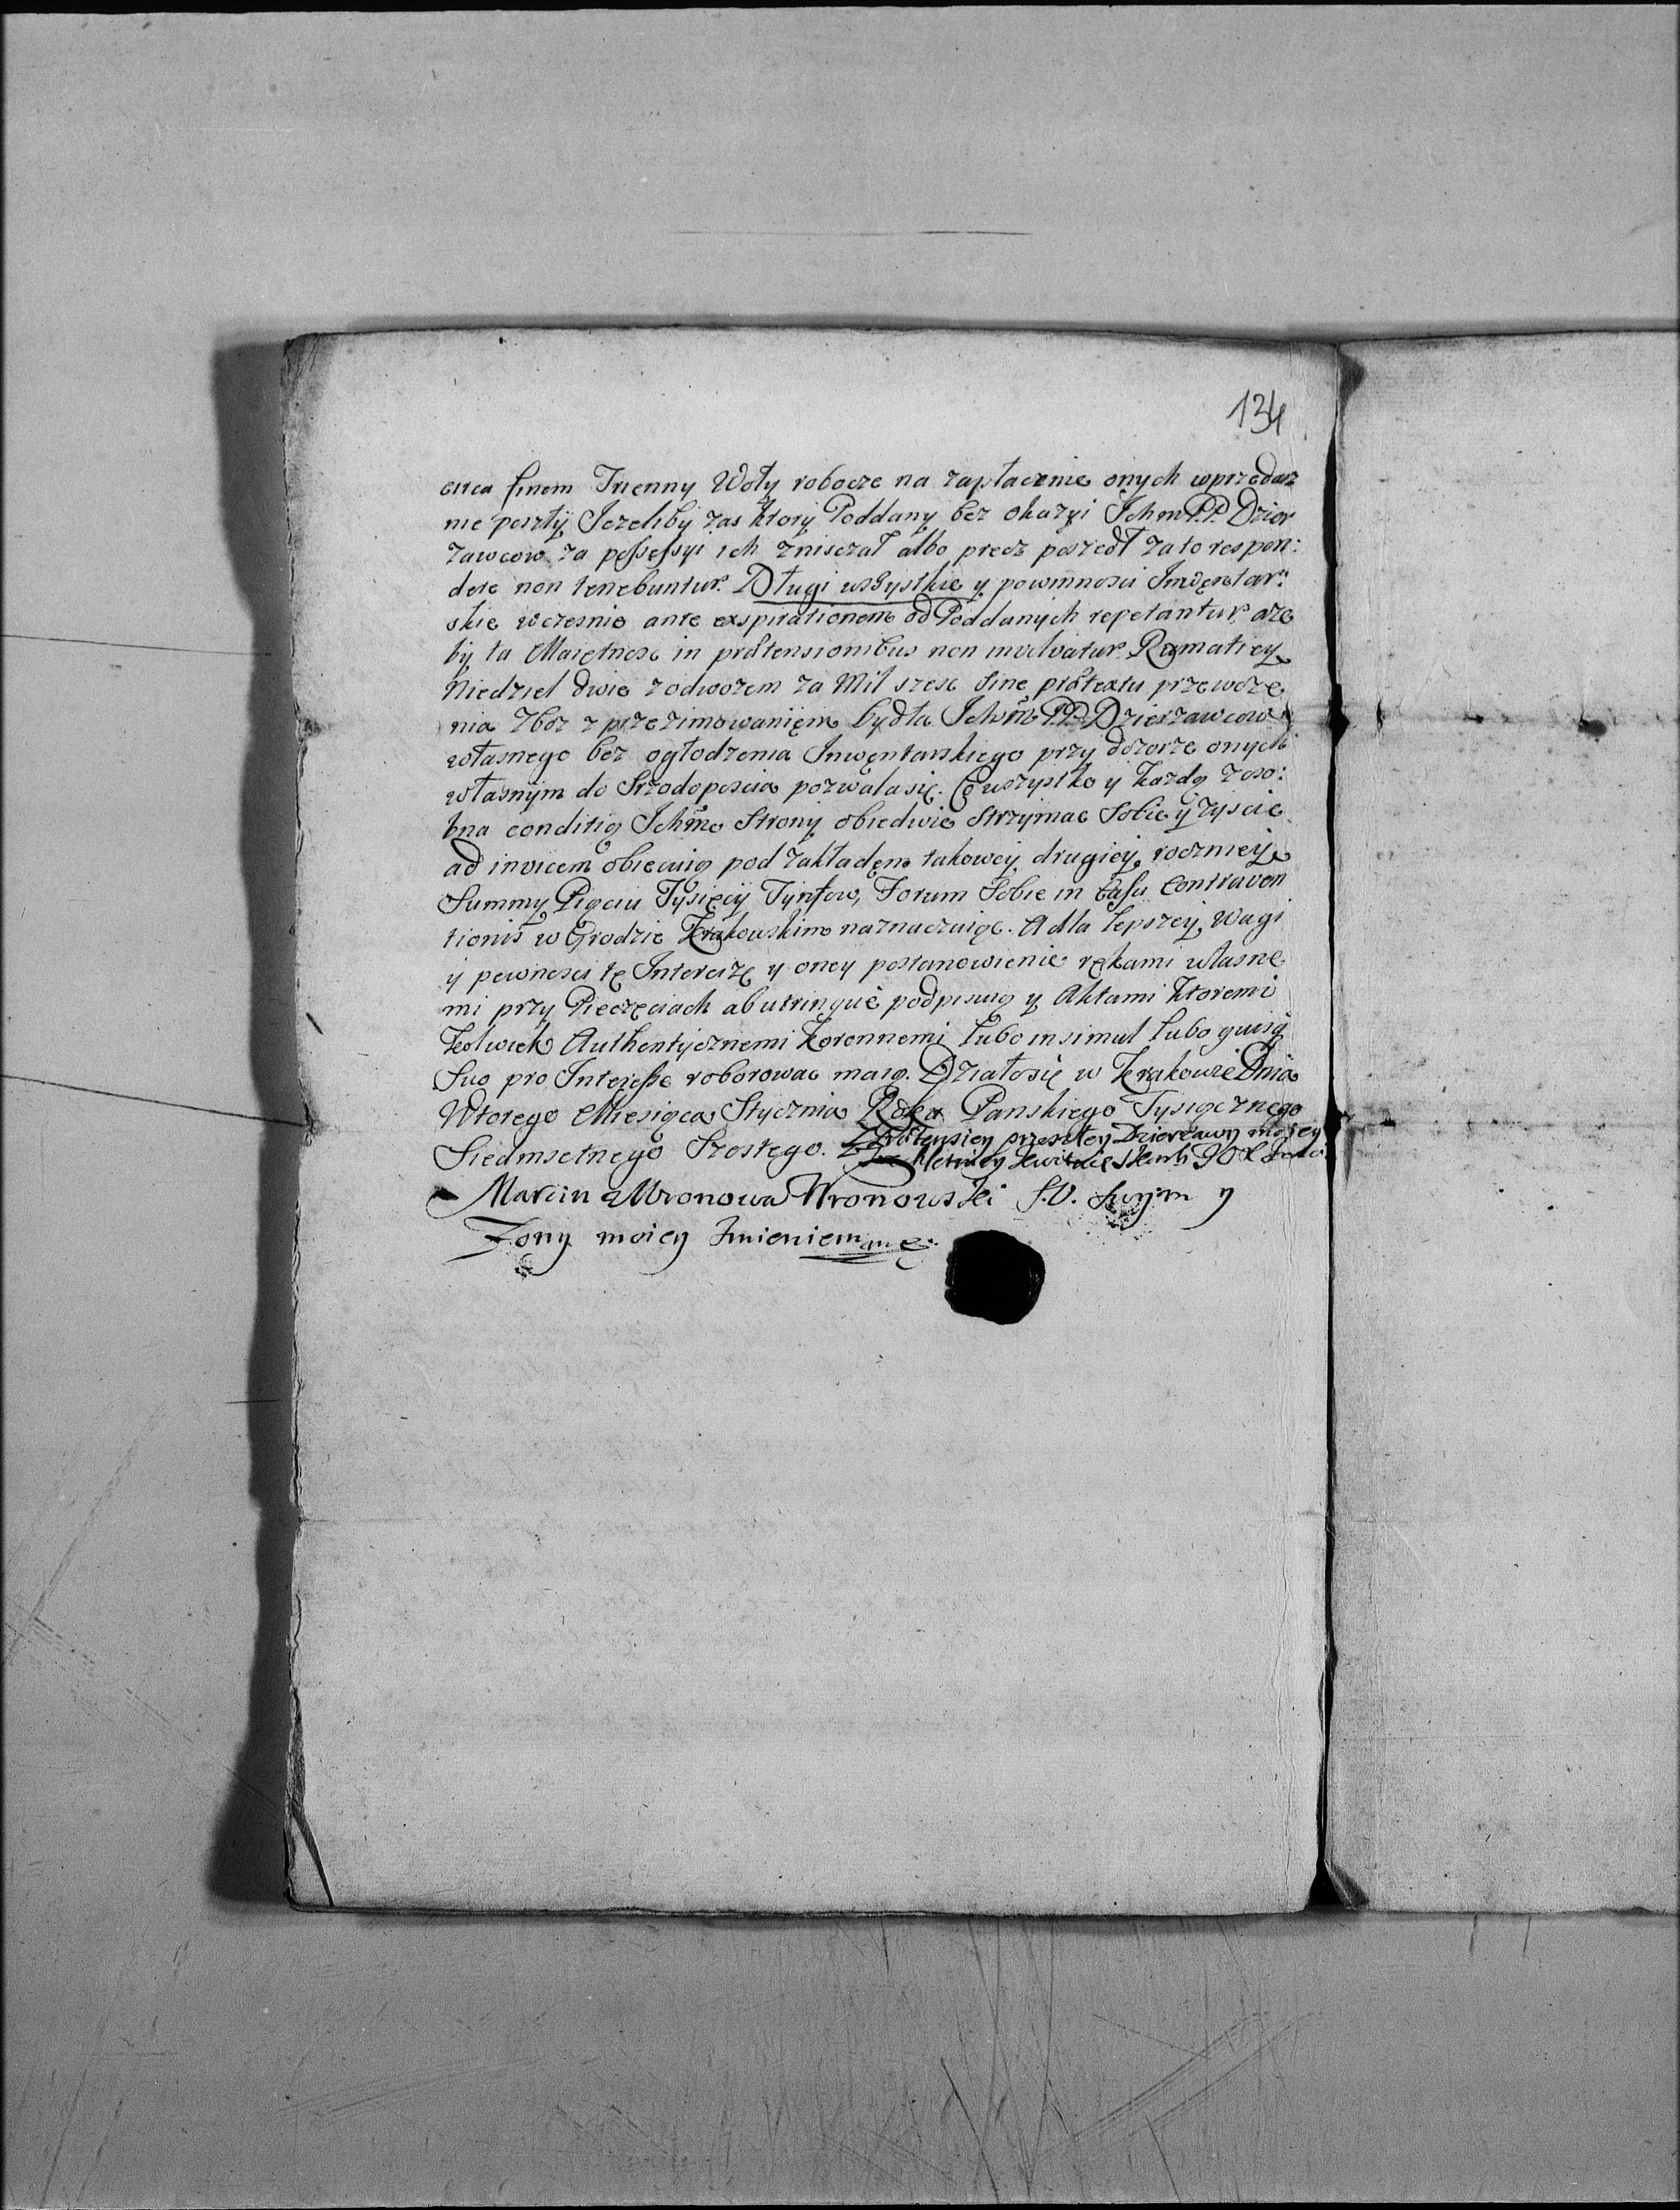 134
circa finem Trienny Woły robocze na zapłacenie onych wprzedaz
nie poszły Jezeliby zas ktory Poddany bez okazyi Jchm P.P. Dzier
zawcow za possessyi ich zniszczał albo precz poszedł za to respon:
dere non tenebuntur. Długi wszystkie y powinnosci Inwentar:
skie wczesnie ante exspirationem od Poddanych repetantur, aze
by ta Maiętnosc in prætensionibus non involvatur. Rumatiey
Niedziel dwie z odwozem za Mil szesc sine prætextu przewoze
nia Zboz z przezimowaniem bydła Jchm P.P. Dzierzawcow
własnego bez ogłodzenia Inwentarskiego przy dozorze onych
własnym do Srzodoposcia pozwala się. Co wszystko y kazdą z oso:
bna conditią Jchm Strony obiedwie strzymac sobie y zyscic
ad invicem obiecuią pod zakładem takowey drugiey, roczniey
Summy Pięciu Tysięcy Tynfow, Forum sobie in casu contraven
tionis w Grodzie Krakowskim naznaczaiąc. A dla lepszey Wagi
y pewnosci tę Intercizę y oney postanowienie rękami własne
mi przy Pieczęciach ab utrinque podpisuią y Aktami ktoremi
kolwiek Authentycznemi Koronnemi lubo in simul lubo quisq
suo pro Interesse roborowac maią. Działo się w Krakowie Dnia
Wtorego Miesiąca Stycznia Roku Panskiego Tysiącznego
Siedmsetnego Szostego. Z prætensiey przeszłey Dzierzawy moiey
letniey kwituię
Marcin z Wronowa Wronowski S.V. swym y
Zony moiey Imieniem mp.